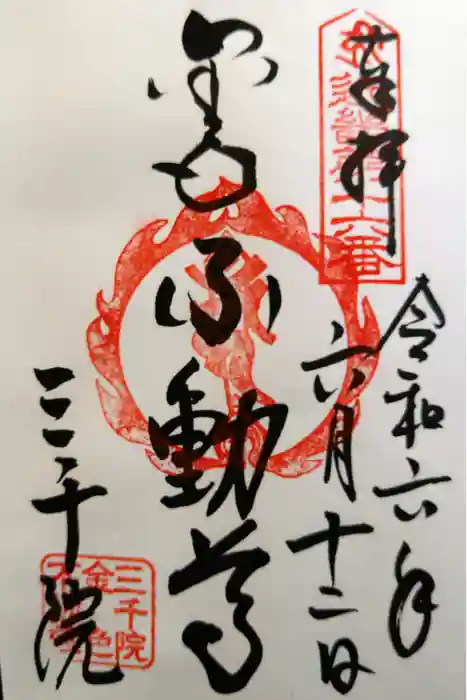 奉拝
十六番
令和六年
六月十二日
金色不動尊
三千院
三千院
金色